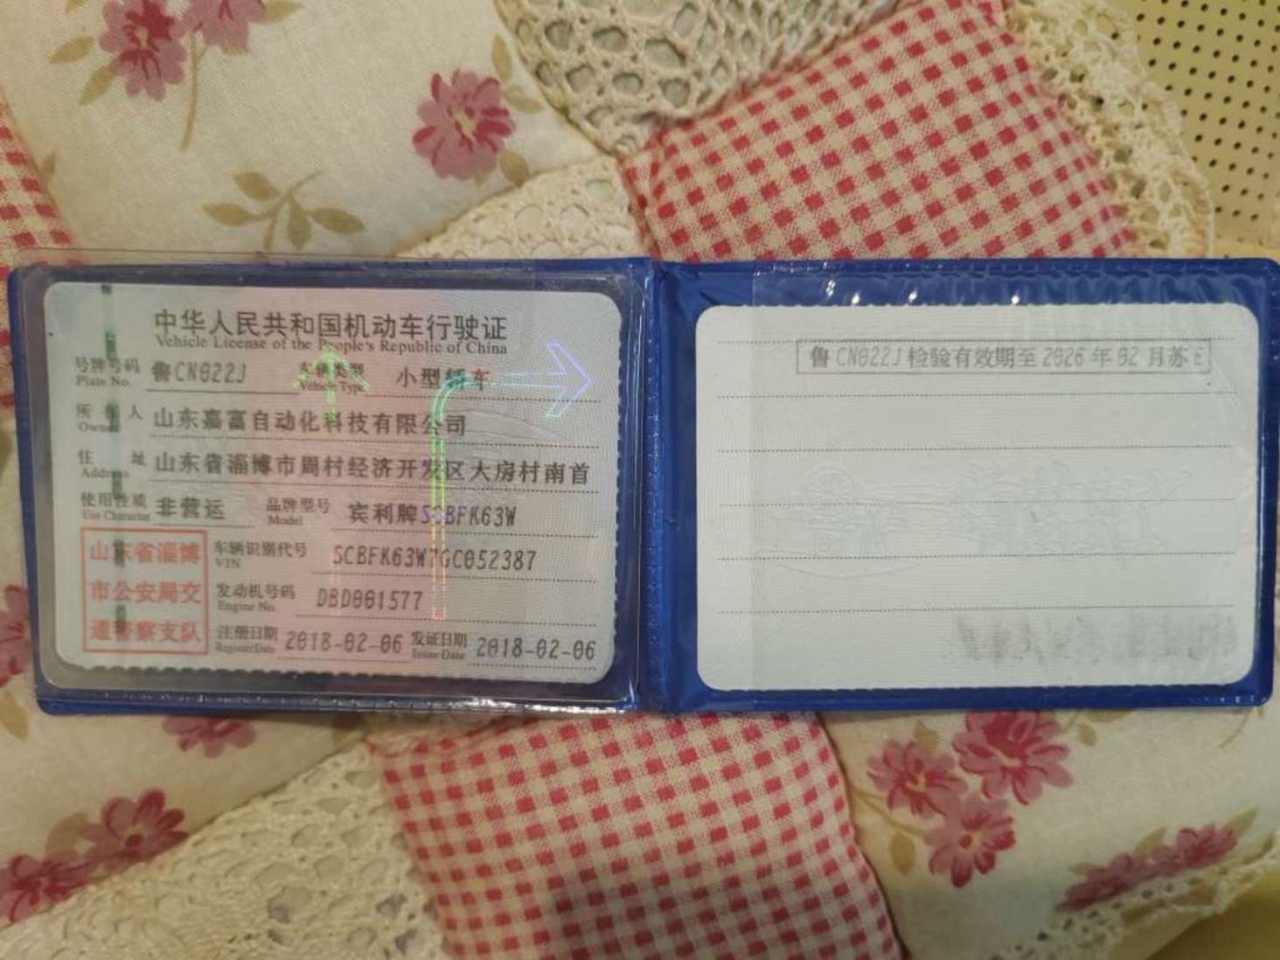 中华人民共和国机动车行驶证
Vehicle License of the People's Republic of China
号牌号码 鲁CN022J 车辆类型 小型轿车
Plate No. Vehicle Type
所有人 山东嘉富自动化科技有限公司
Owner
住址 山东省淄博市周村经济开发区大房村南首
Address
使用性质 非营运 品牌型号 宾利牌SCBFK63W
Use Character Model
山东省淄博
市公安局交
通警察支队
车辆识别代号 SCBFK63W7GC052387
VIN
发动机号码 DBD001577
Engine No.
注册日期 2018-02-06 发证日期 2018-02-06
Register Date Issue Date
鲁CN022J检验有效期至2026年02月苏E